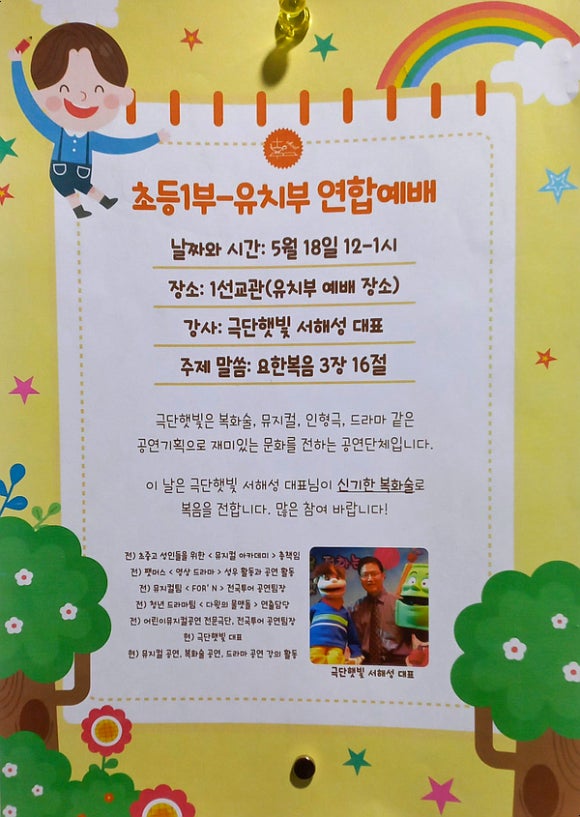 초등1부-유치부 연합예배
날짜와 시간: 5월 18일 12-1시
장소: 1선교관(유치부 예배 장소)
강사: 극단햇빛 서해성 대표
주제 말씀: 요한복음 3장 16절
극단햇빛은 복화술, 뮤지컬, 인형극, 드라마 같은
공연기획으로 재미있는 문화를 전하는 공연단체입니다.
이 날은 극단햇빛 서해성 대표님이 신기한 복화술로
복음을 전합니다. 많은 참여 바랍니다!
전) 초중고 성인들을 위한 < 뮤지컬 아카데미 > 총책임
전) 팻머스 < 영상 드라마 > 성우 활동과 공연 활동
전) 뮤지컬팀 < FOR' N > 전국투어 공연팀장
전) 청년 드라마팀 < 다윗의 물맷돌 > 연출담당
전) 어린이뮤지컬공연 전문극단, 전국투어 공연팀장
현) 극단햇빛 대표
현) 뮤지컬 공연, 복화술 공연, 드라마 공연 강의 활동
극단햇빛 서해성 대표